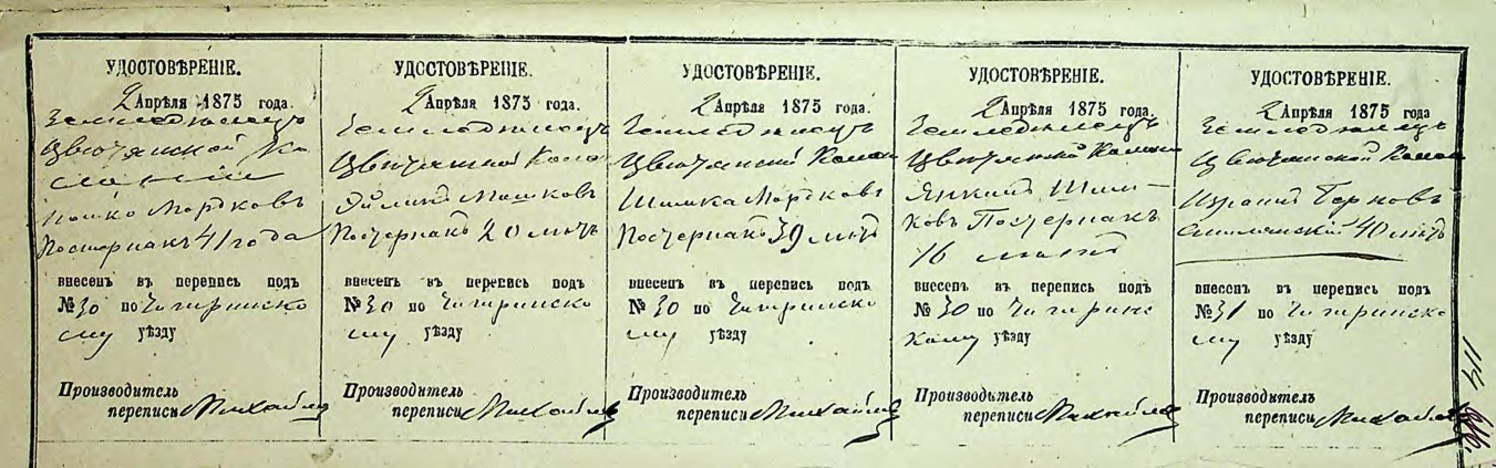 УДОСТОВѢРЕНІЕ.
2 Апрѣля 1875 года.
Земледѣлецъ
Цвѣтянской Ко
лоніи
Мошко Мордковъ
Постернакъ 41 года
внесенъ въ перепись подъ
№ 30 по Чигиринско
му уѣзду
Производитель
переписи Михайлов
УДОСТОВѢРЕНІЕ.
2 Апрѣля 1875 года.
Земледѣлецъ
Цвѣтянской Коло
Мошковъ
Постернакъ 20 лѣтъ
внесенъ въ перепись подъ
№ 30 по Чигиринско
му уѣзду
Производитель
переписи Михайлов
УДОСТОВѢРЕНІЕ.
2 Апрѣля 1875 года.
Земледѣлецъ
Цвѣтянской Колон
Шимка Мордковъ
Постернакъ 39 лѣтъ
внесенъ въ перепись подъ
№ 30 по Чигиринско
му уѣзду
Производитель
переписи Михайлов
УДОСТОВѢРЕНІЕ.
2 Апрѣля 1875 года.
Земледѣлецъ
Цвѣтянской Колони
Янкель Шим-
ковъ Постернакъ
16 лѣтъ
внесенъ въ перепись подъ
№ 30 по Чигирин
скому уѣзду
Производитель
переписи Михайлов
УДОСТОВѢРЕНІЕ.
2 Апрѣля 1875 года
Земледѣлецъ
Цвѣтянской Колон
Израиль Берковъ
Смилянскій 40 лѣтъ
внесенъ въ перепись подъ
№ 31 по Чигиринско
му уѣзду
Производитель
переписи Михайлов
114